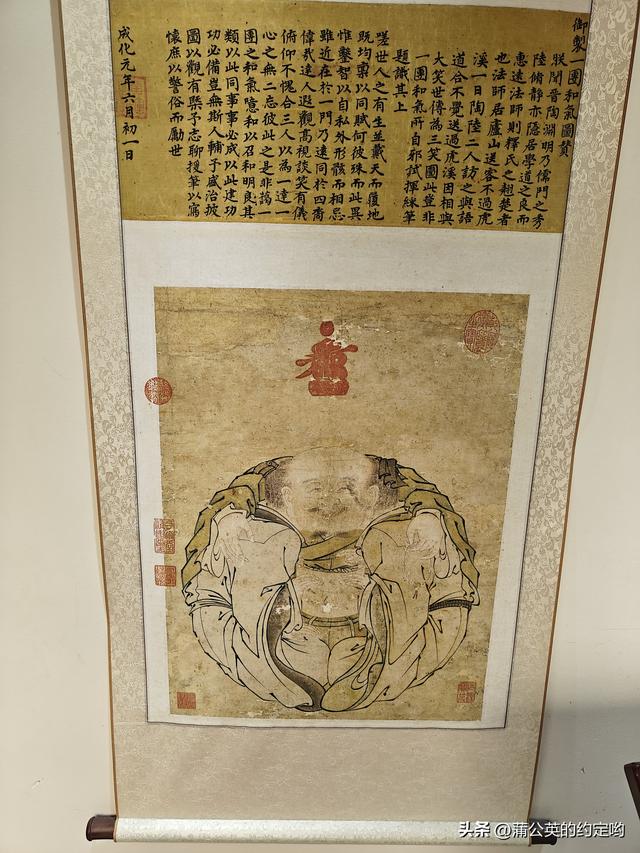 御製一團和氣圖贊
朕聞晉陶淵明乃儒門之秀
陸脩靜亦隱居學道之良而
惠遠法師則釋氏之翹楚者
也法師居廬山送客不過虎
溪一日陶陸二人訪之與語
道合不覺送過虎溪因相與
大笑世傳為三笑圖此豈非
一團和氣所自邪試揮綵筆
題識其上
嗟世人之有生並戴天而履地
既均稟以同賦何彼殊而此異
惟鑿智以自私外形骸而相忌
雖近在於一門乃遠同於四裔
偉哉達人遐觀高視談笑有儀
俯仰不愧合三人以為一達一
心之無二忘彼此之是非藹一
團之和氣噫和以召和明良其
類以此同事事必成以此建功
功必備豈無斯人輔予盛治披
圖以觀有槩予志聊援筆以寫
懷庶以警俗而勵世
成化元年六月初一日
头条 @蒲公英的约定哟